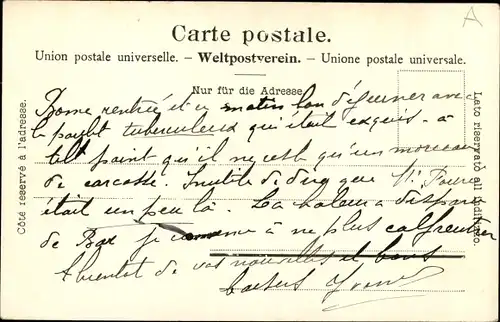 A
Carte postale.
Union postale universelle. – Weltpostverein. – Unione postale universale.
Nur für die Adresse
Côté reservé à l'adresse.
Lato riservato all'indirizzo.
Bonne rentrée et ce matin bon déjeuner avec
le poulet tuberculeux qui était exquis – à
tel point qu'il ne reste qu'un morceau
de carcasse. Inutile de dire que
était un peu là. La
de je commence à ne plus
A bientôt de vos nouvelles et bons
baisers Yvonne